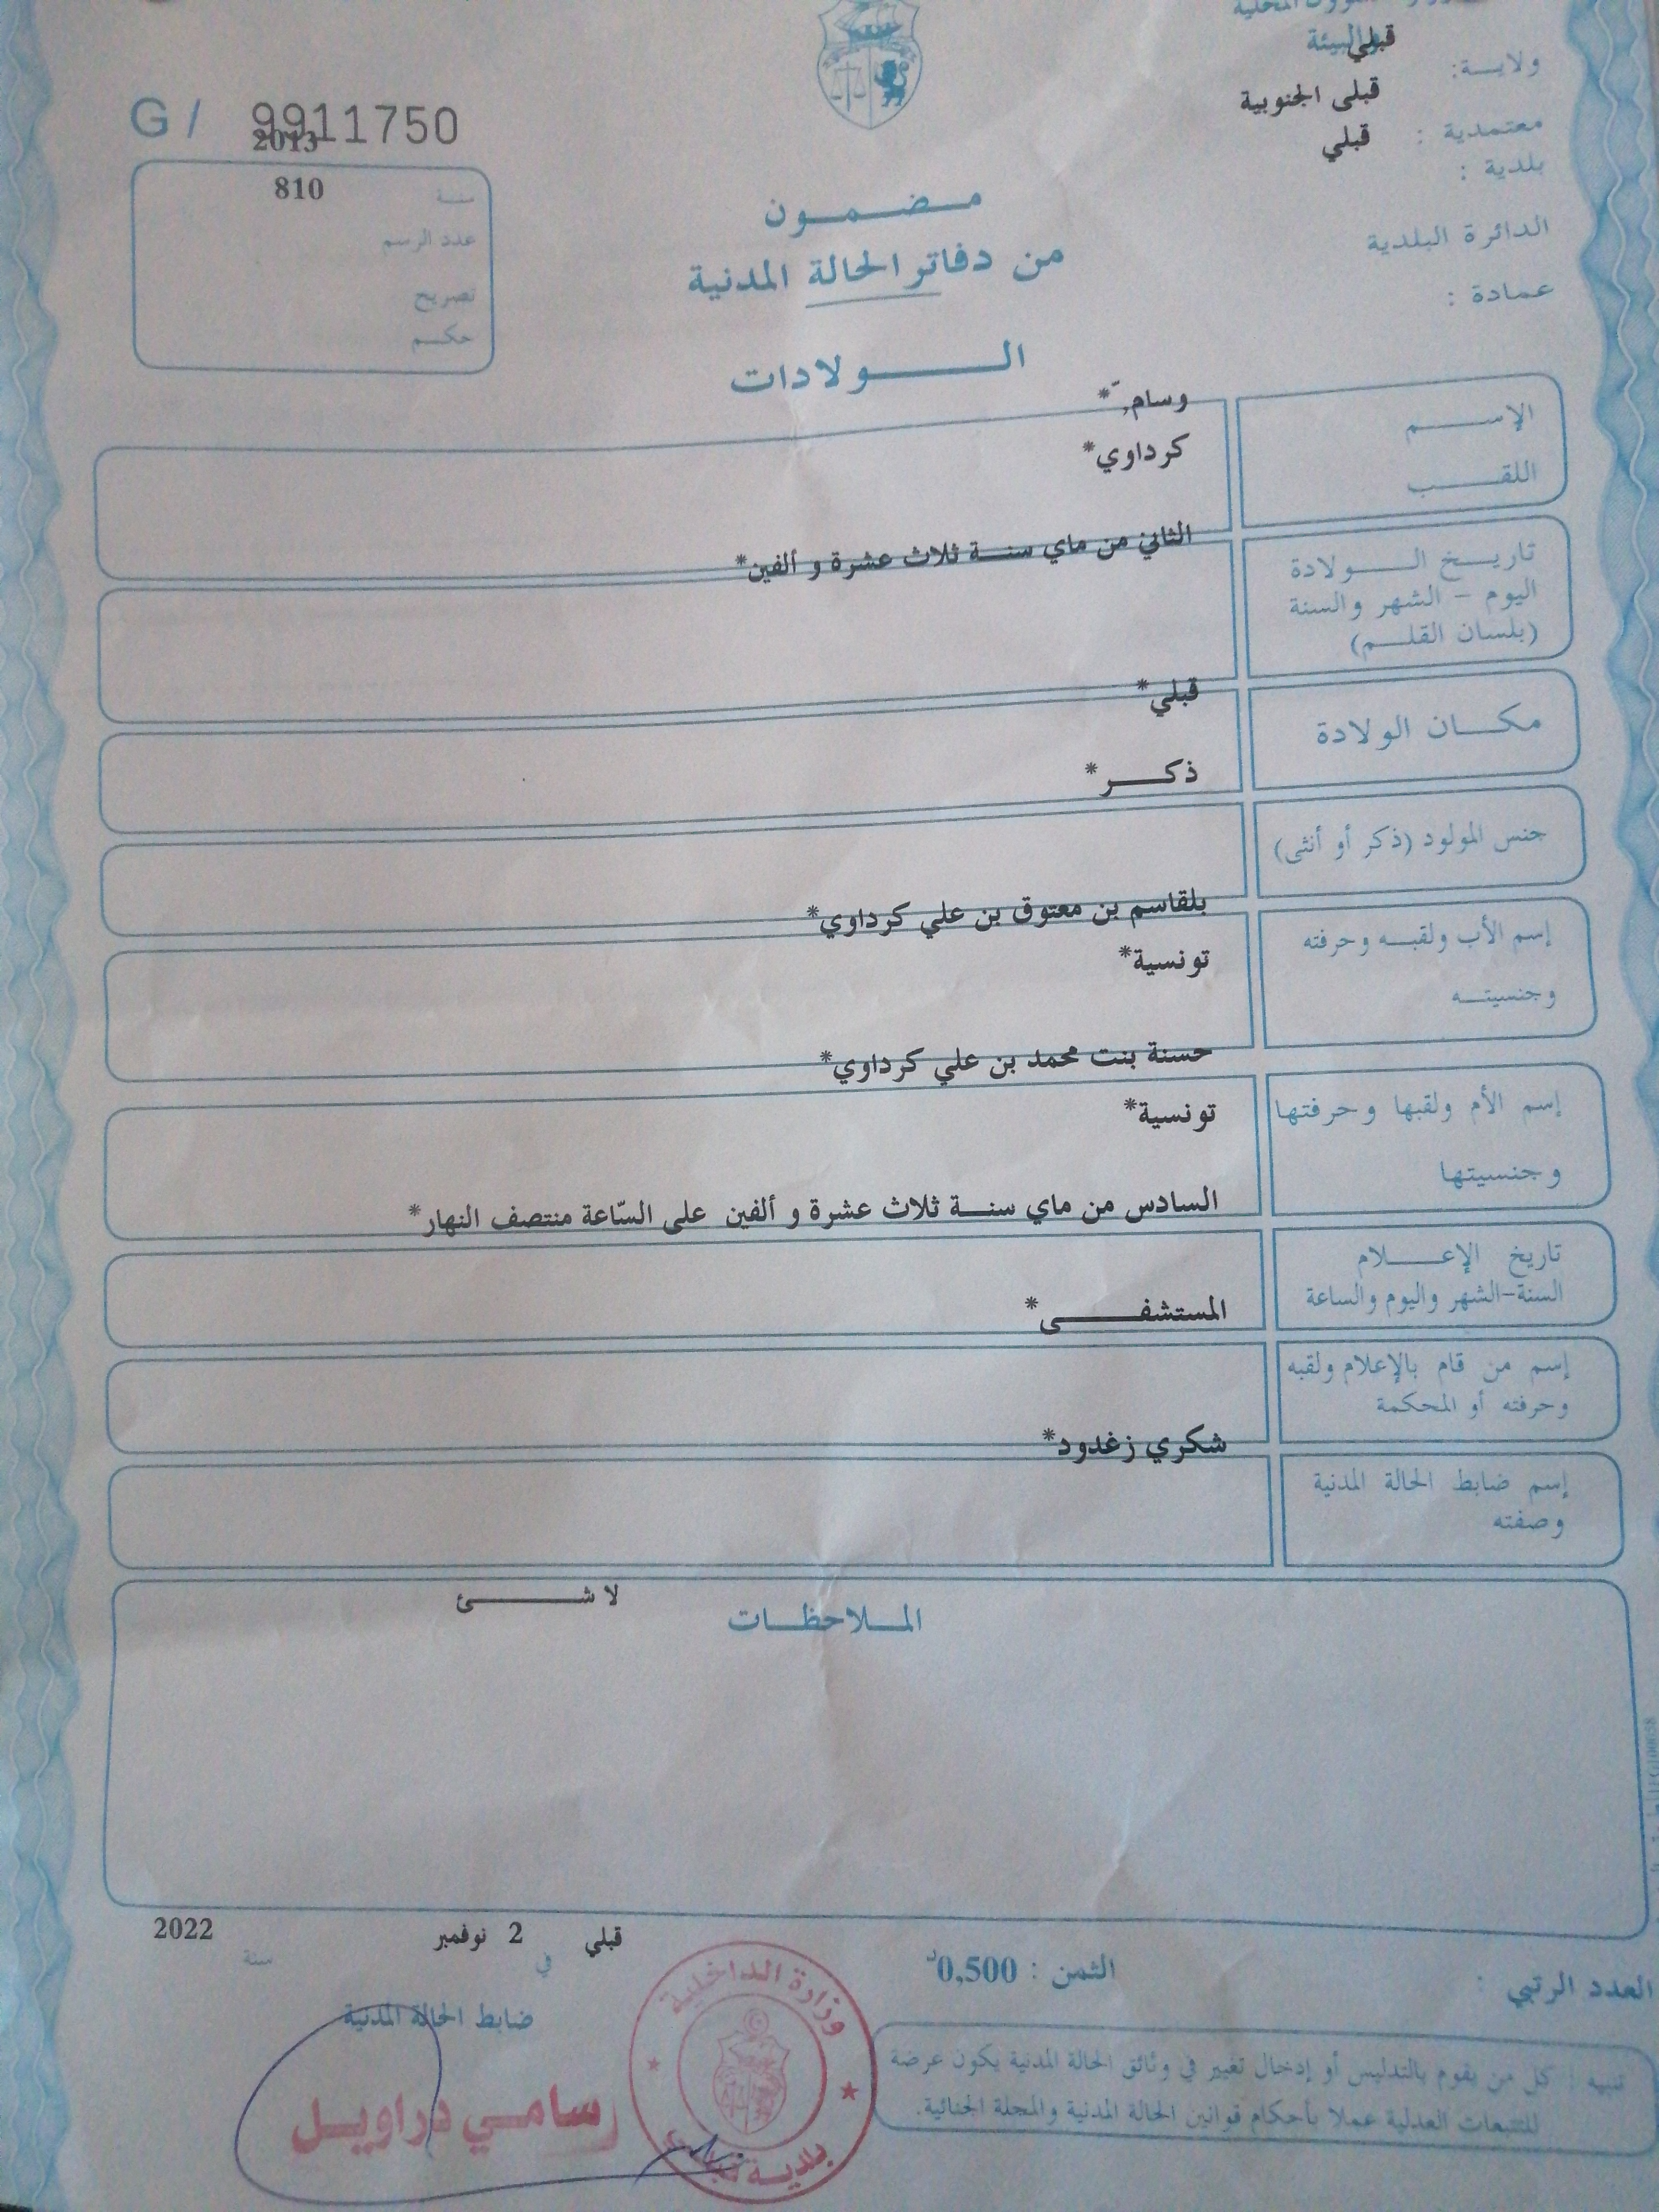 الشؤون المحلية
والبيئة
ولايـــة: قبلي
معتمدية : قبلى الجنوبية
بلدية : قبلي
الدائرة البلدية
عمادة :
G / 9911750
سنة 2013
عدد الرسم 810
تصريح
حكـــم
مـــضـــمـــون
من دفاتر الحالة المدنية
الـــــولادات
الإســـــم وسام, ّ*
اللقـــــب كرداوي*
تاريـــخ الـــــولادة الثاني من ماي سنـــة ثلاث عشرة و ألفين*
اليوم – الشهر والسنة
(بلسان القلـــم)
مكـــان الولادة قبلي*
جنس المولود (ذكر أو أنثى) ذكـــــر*
إسم الأب ولقبـــه وحرفته بلقاسم بن معتوق بن علي كرداوي*
وجنسيتـــه تونسية*
إسم الأم ولقبها وحرفتها حسنة بنت محمد بن علي كرداوي*
وجنسيتها تونسية*
تاريخ الإعـــــلام السادس من ماي سنـــة ثلاث عشرة و ألفين على السّاعة منتصف النهار*
السنة-الشهر واليوم والساعة
إسم من قام بالإعلام ولقبه المستشفـــــى*
وحرفته أو المحكمة
إسم ضابط الحالة المدنية شكري زغدود*
وصفته
المـــلاحظـــات
لا شـــــئ
قبلي في 2 نوفمبر سنة 2022
العدد الرتبي :
الثمن : 0,500د
ضابط الحالة المدنية
سامـي دراويـــل
وزارة الداخلية
بلديـة قبلي
تنبيه : كل من يقوم بالتدليس أو إدخال تغيير في وثائق الحالة المدنية يكون عرضة
للتتبعات العدلية عملا بأحكام قوانين الحالة المدنية والمجلة الجنائية.